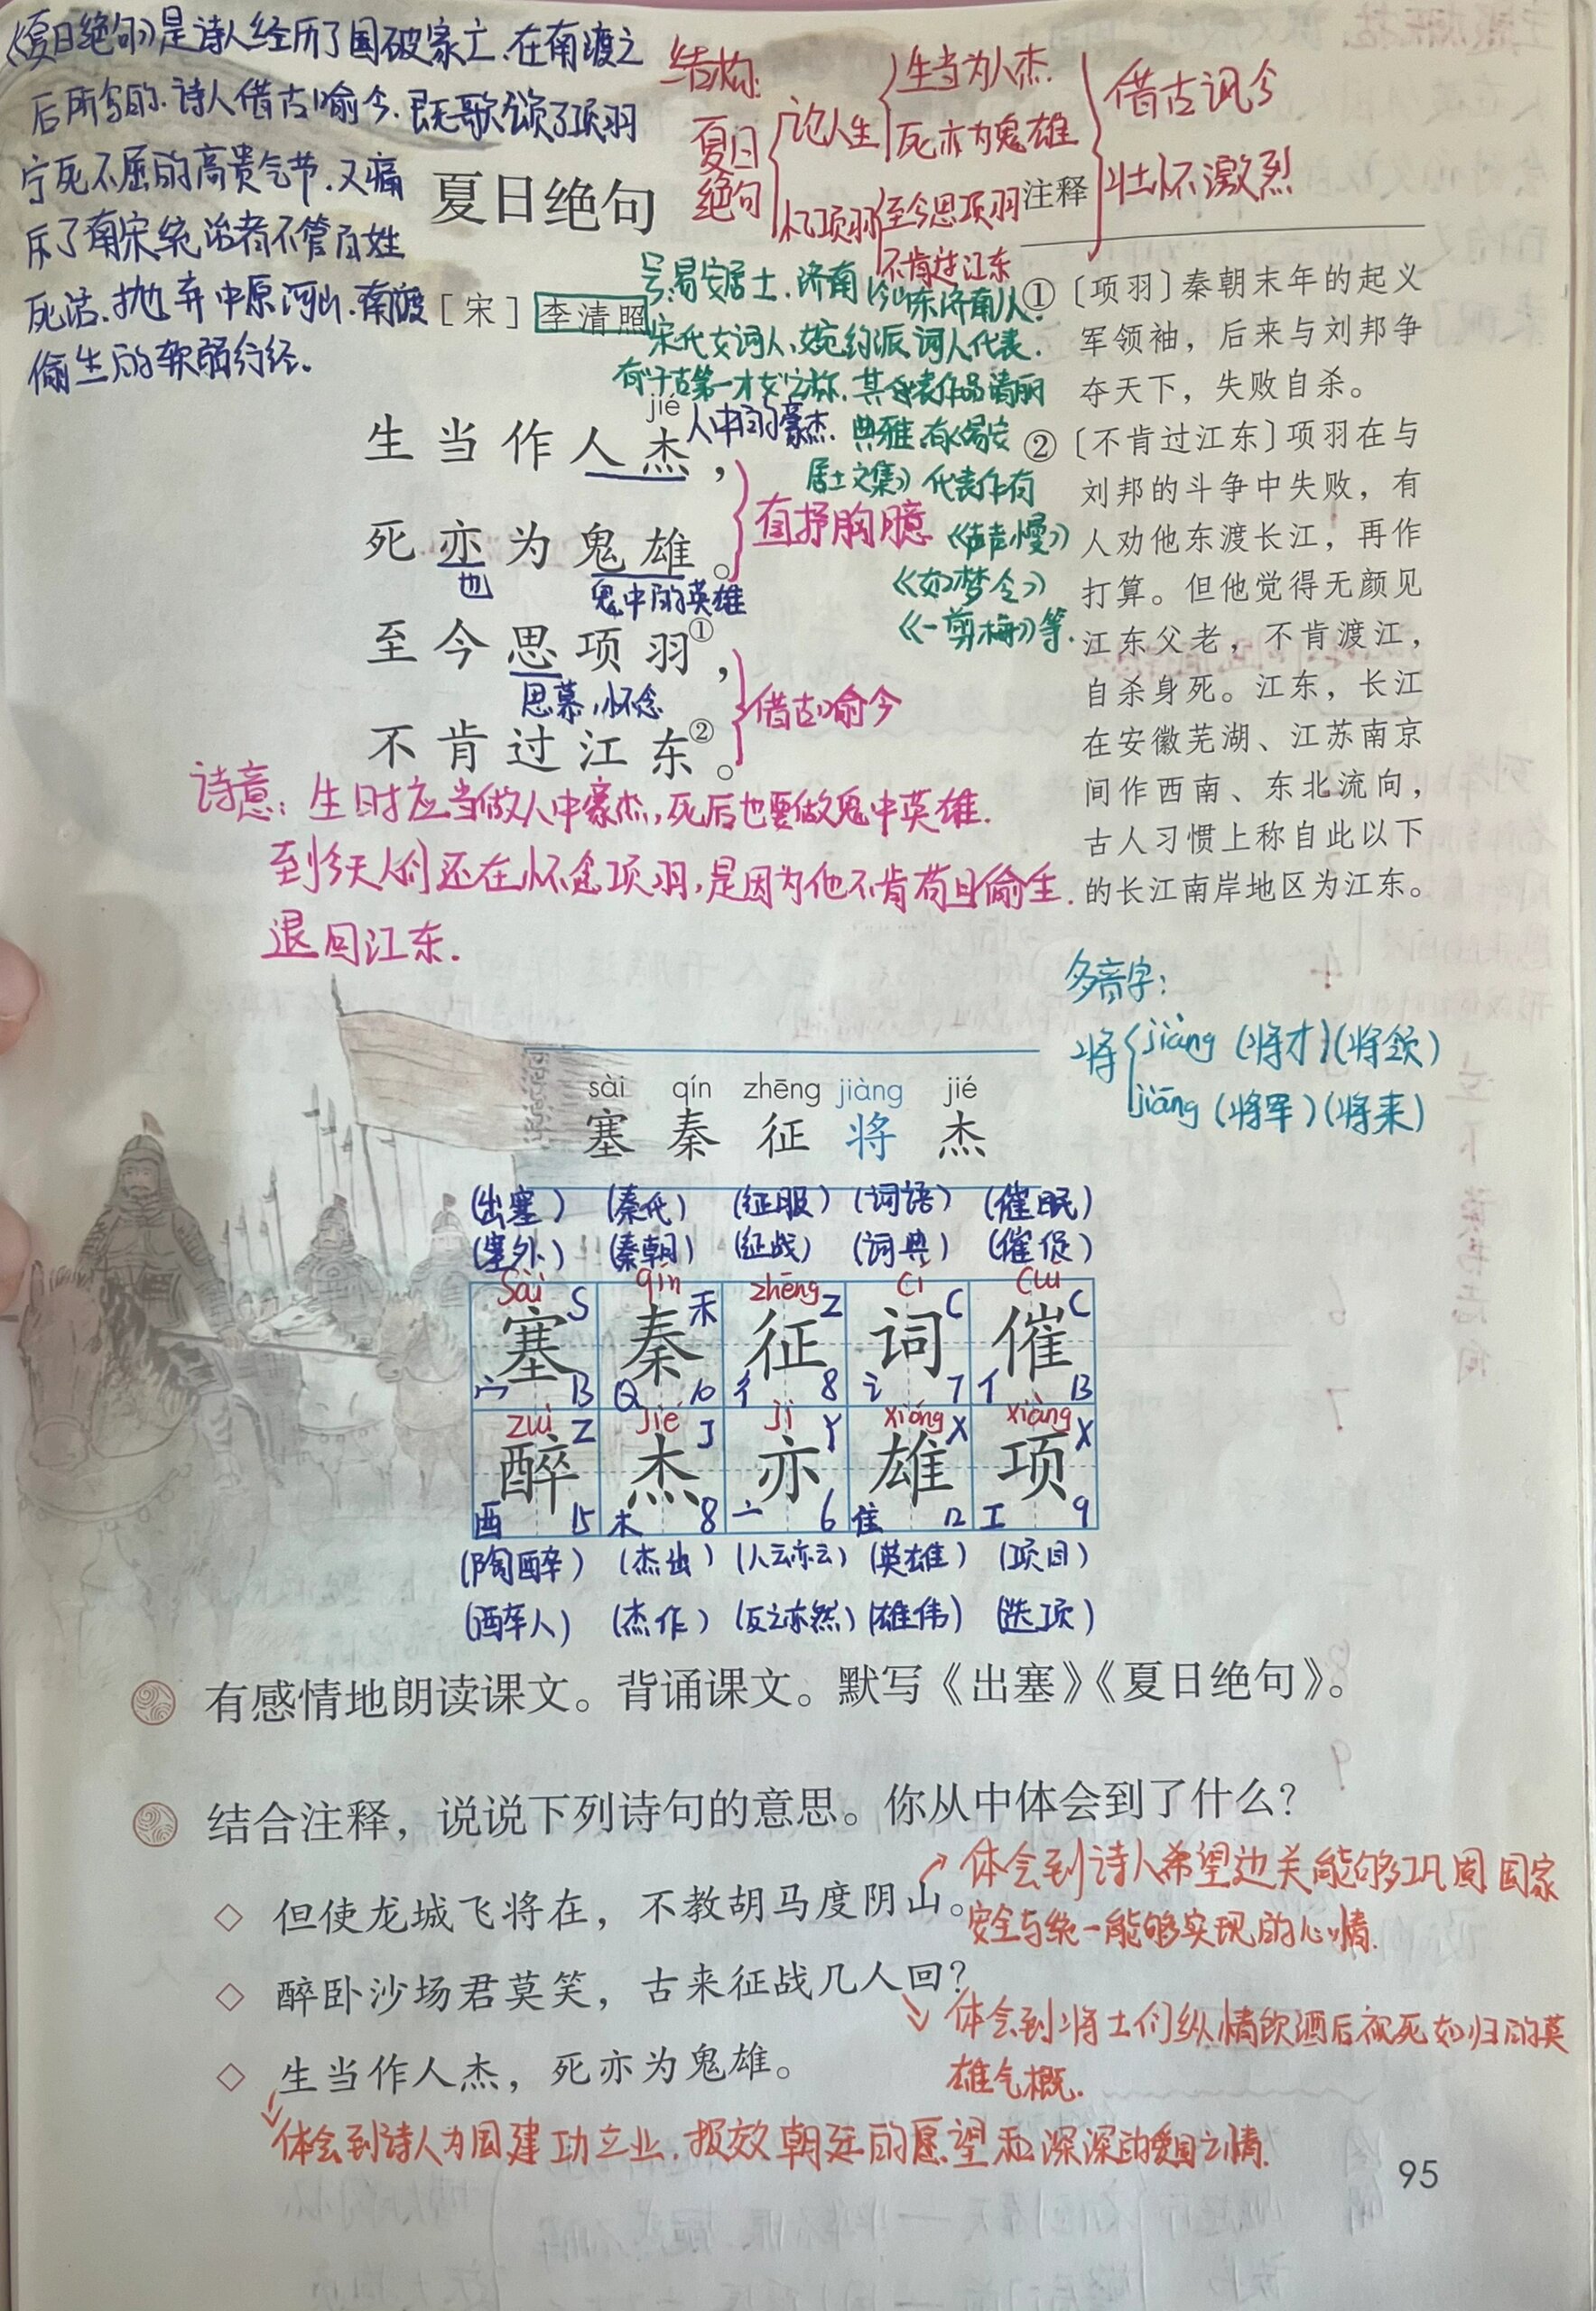 《夏日绝句》是诗人经历了国破家亡.在南渡之
后所写的.诗人借古喻今.既歌颂了项羽
宁死不屈的高贵气节.又痛
斥了南宋统治者不管百姓
死活.抛弃中原河山.南渡
偷生的软弱行经.
结构:
夏日
绝句
论人生
生当为人杰.
死亦为鬼雄
忆项羽
至今思项羽
不肯过江东
借古讽今
壮怀激烈
夏日绝句
[宋] 李清照
号易安居士.济南(今山东济南)人.
宋代女词人,婉约派词人代表.
有"千古第一才女"之称.其代表作品清丽
典雅.有《易安
居士文集》代表作有
《声声慢》
《如梦令》
《一剪梅》等.
jié
生当作人杰，
人中的豪杰.
死亦为鬼雄。
也
鬼中的英雄
直抒胸臆
至今思项羽①，
思慕,怀念
不肯过江东②。
借古喻今
诗意：生时应当做人中豪杰,死后也要做鬼中英雄.
到今天人们还在怀念项羽,是因为他不肯苟且偷生.
退回江东.
注释
①〔项羽〕秦朝末年的起义
军领袖，后来与刘邦争
夺天下，失败自杀。
②〔不肯过江东〕项羽在与
刘邦的斗争中失败，有
人劝他东渡长江，再作
打算。但他觉得无颜见
江东父老，不肯渡江，
自杀身死。江东，长江
在安徽芜湖、江苏南京
间作西南、东北流向，
古人习惯上称自此以下
的长江南岸地区为江东。
多音字：
将
jiàng (将才)(将领)
jiāng (将军)(将来)
sài qín zhēng jiàng jié
塞 秦 征 将 杰
(出塞) (秦代) (征服) (词语) (催眠)
(塞外) (秦朝) (征战) (词典) (催促)
Sài qín zhēng Cí Cuī
S 禾 Z C C
塞 秦 征 词 催
宀 13 Q 10 彳 8 讠 7 亻 13
zuì Jié Jì xióng xiàng
Z J Y X X
醉 杰 亦 雄 项
酉 15 木 8 亠 6 隹 12 工 9
(陶醉) (杰出) (人云亦云) (英雄) (项目)
(醉人) (杰作) (反之亦然) (雄伟) (选项)
有感情地朗读课文。背诵课文。默写《出塞》《夏日绝句》。
结合注释，说说下列诗句的意思。你从中体会到了什么？
◇ 但使龙城飞将在，不教胡马度阴山。
体会到诗人希望边关能够巩固国家
安全与统一能够实现的心情.
◇ 醉卧沙场君莫笑，古来征战几人回？
体会到将士们纵情饮酒后视死如归的英
雄气概.
◇ 生当作人杰，死亦为鬼雄。
体会到诗人为国建功立业.报效朝廷的愿望和深深的爱国之情.
95